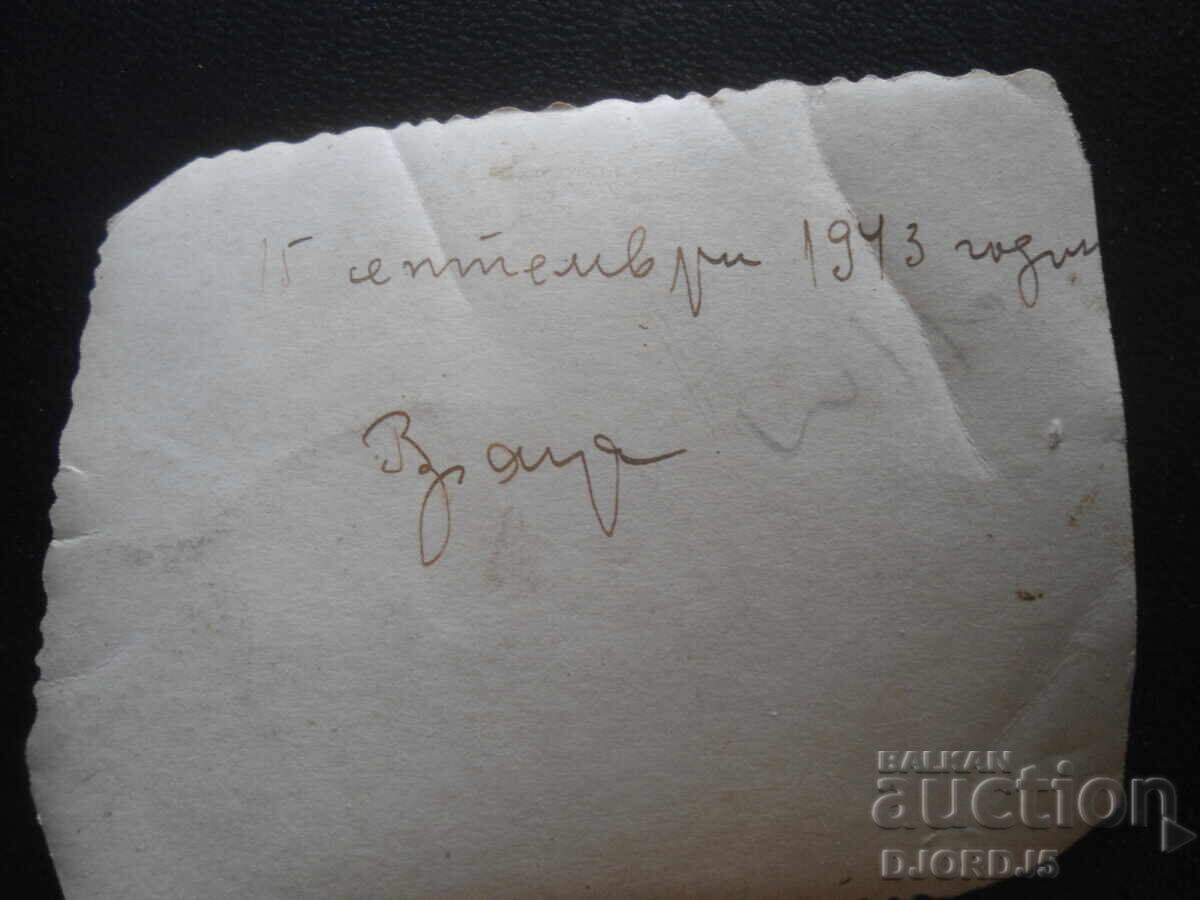 15 септември 1943 годин
Враца
BALKAN
auction
DJORDJ5